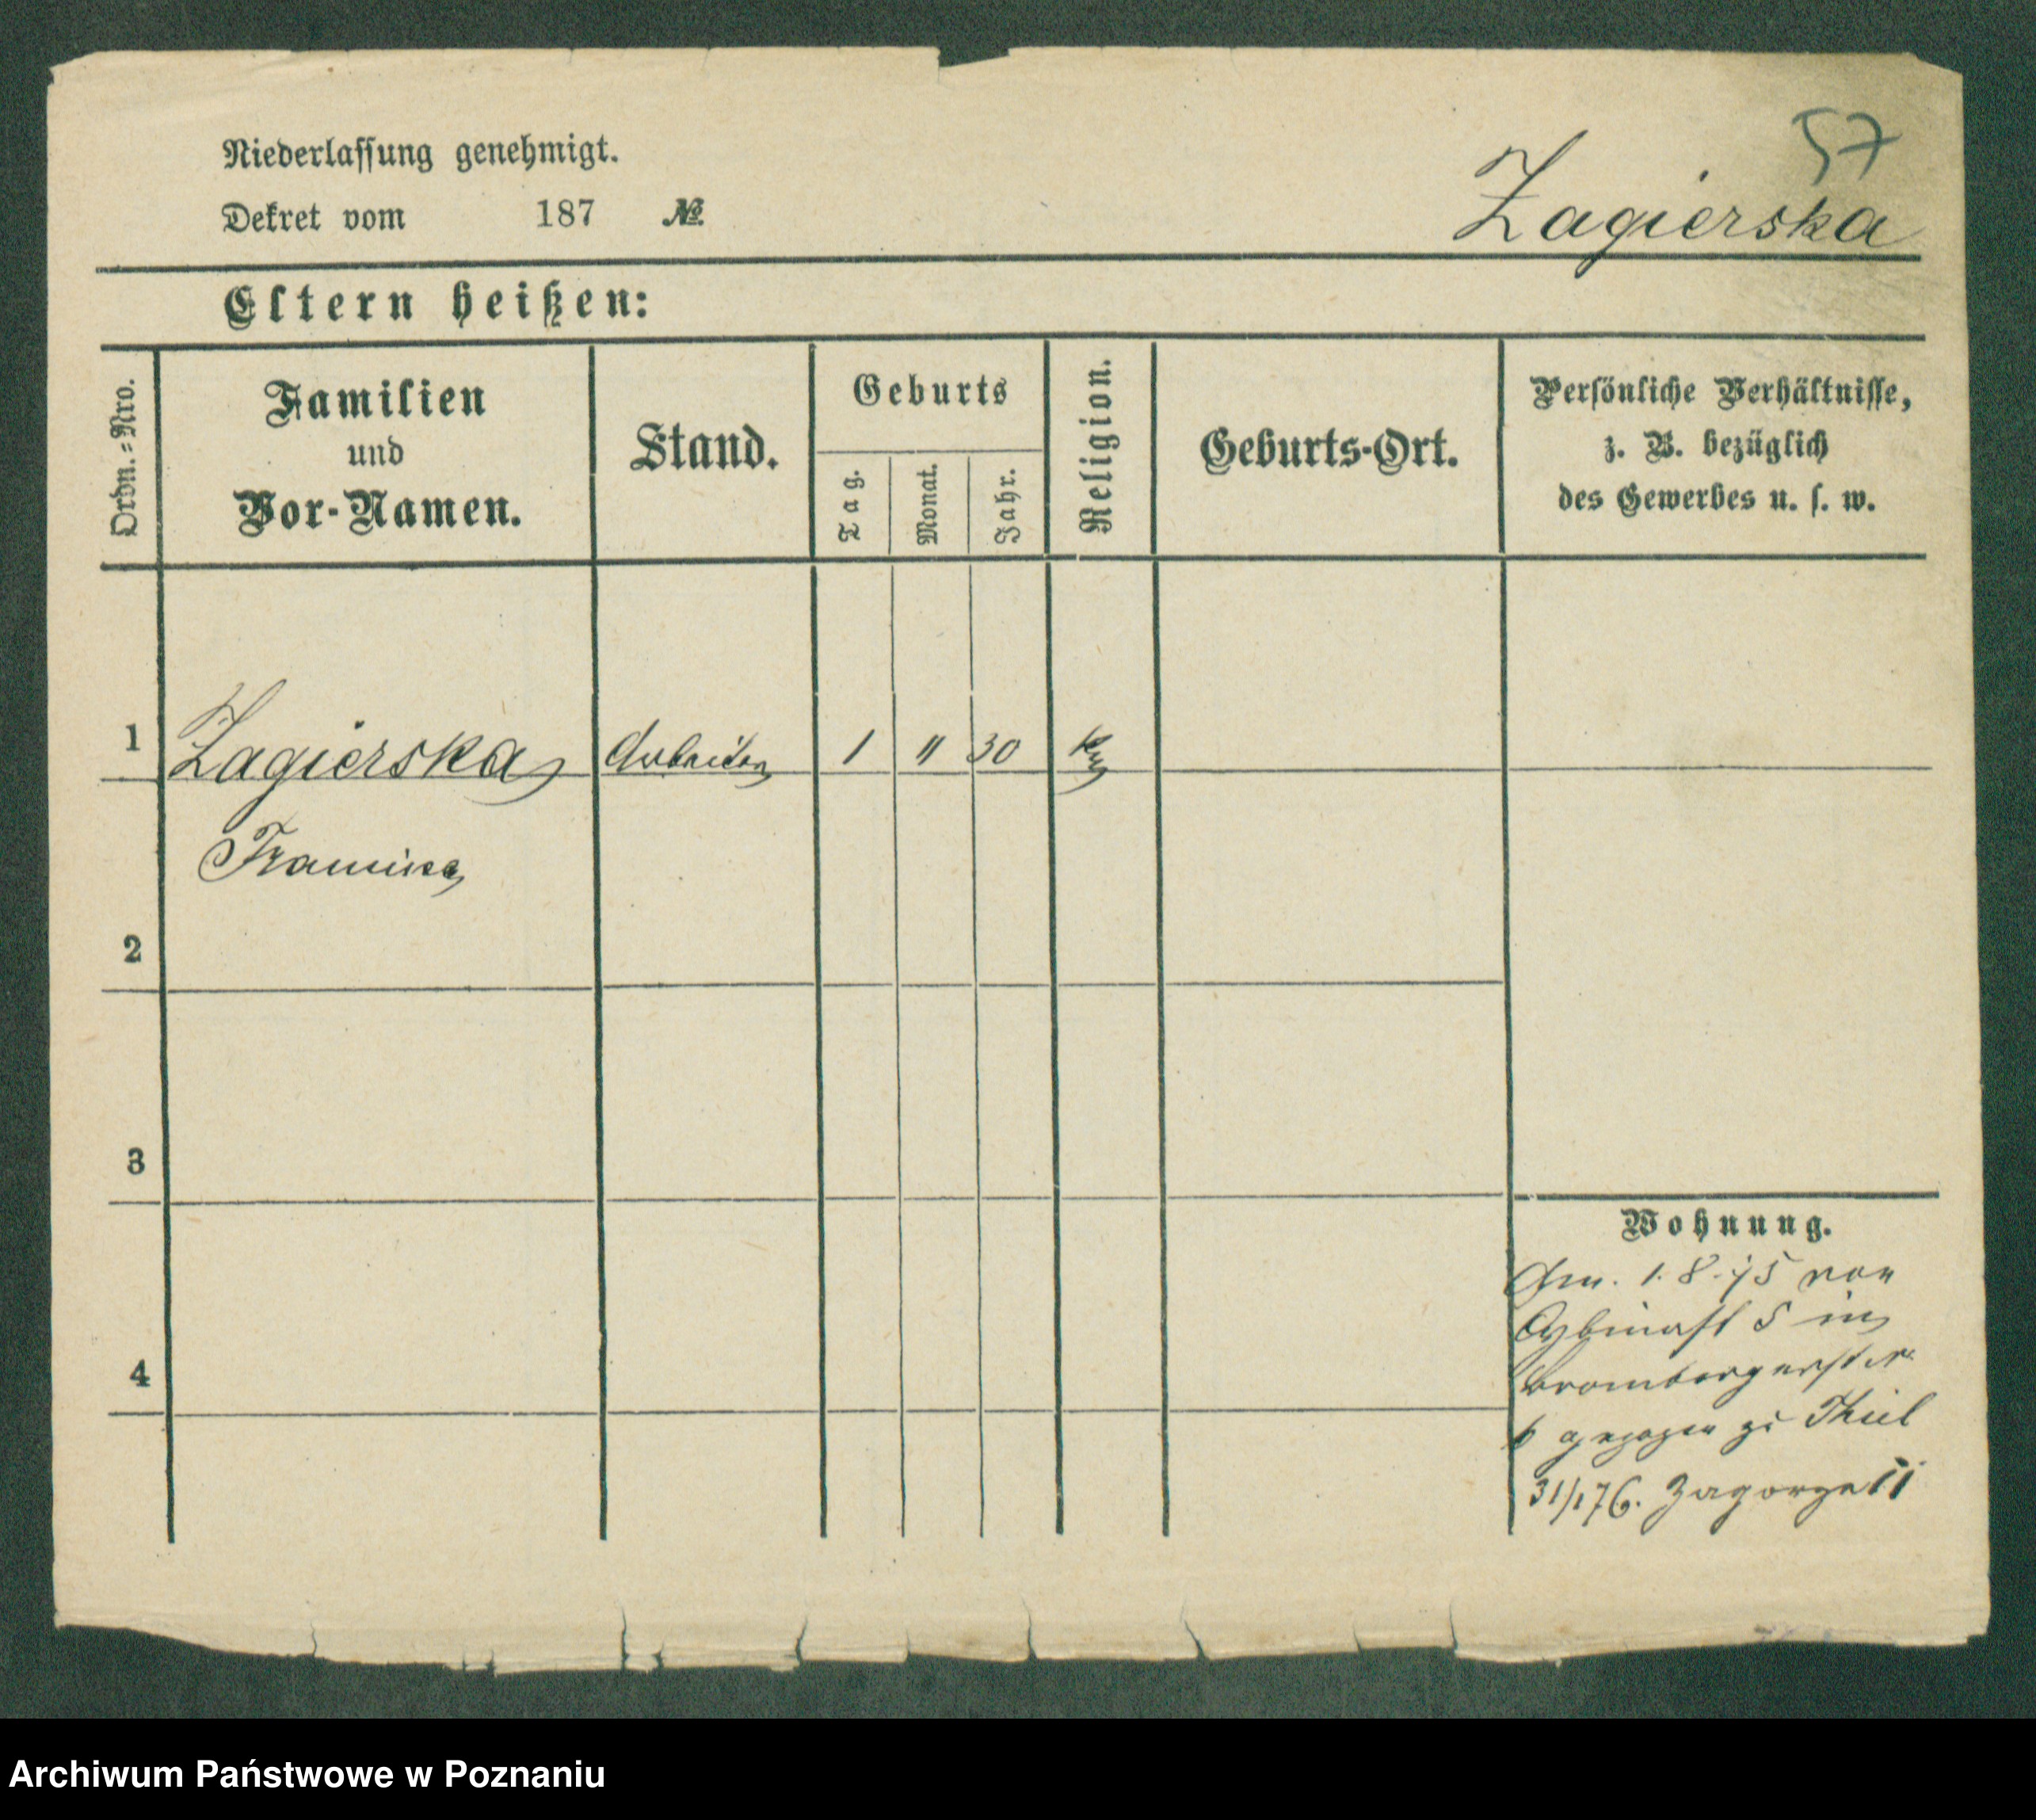 57
Niederlassung genehmigt.
Dekret vom 187 №
Zagierska
Eltern heißen:
Ordn.=Nro.
Familien
und
Vor-Namen.
Stand.
Geburts
Tag.
Monat.
Jahr.
Religion.
Geburts-Ort.
Persönliche Verhältnisse,
z. B. bezüglich
des Gewerbes u. s. w.
1 Zagierska 1 11 30
2
3
4
Wohnung.
1.8.75 von
5 in
Brombergerstr
6 gezogen zu Thiel
31/1 76. Zagorze 11
Archiwum Państwowe w Poznaniu